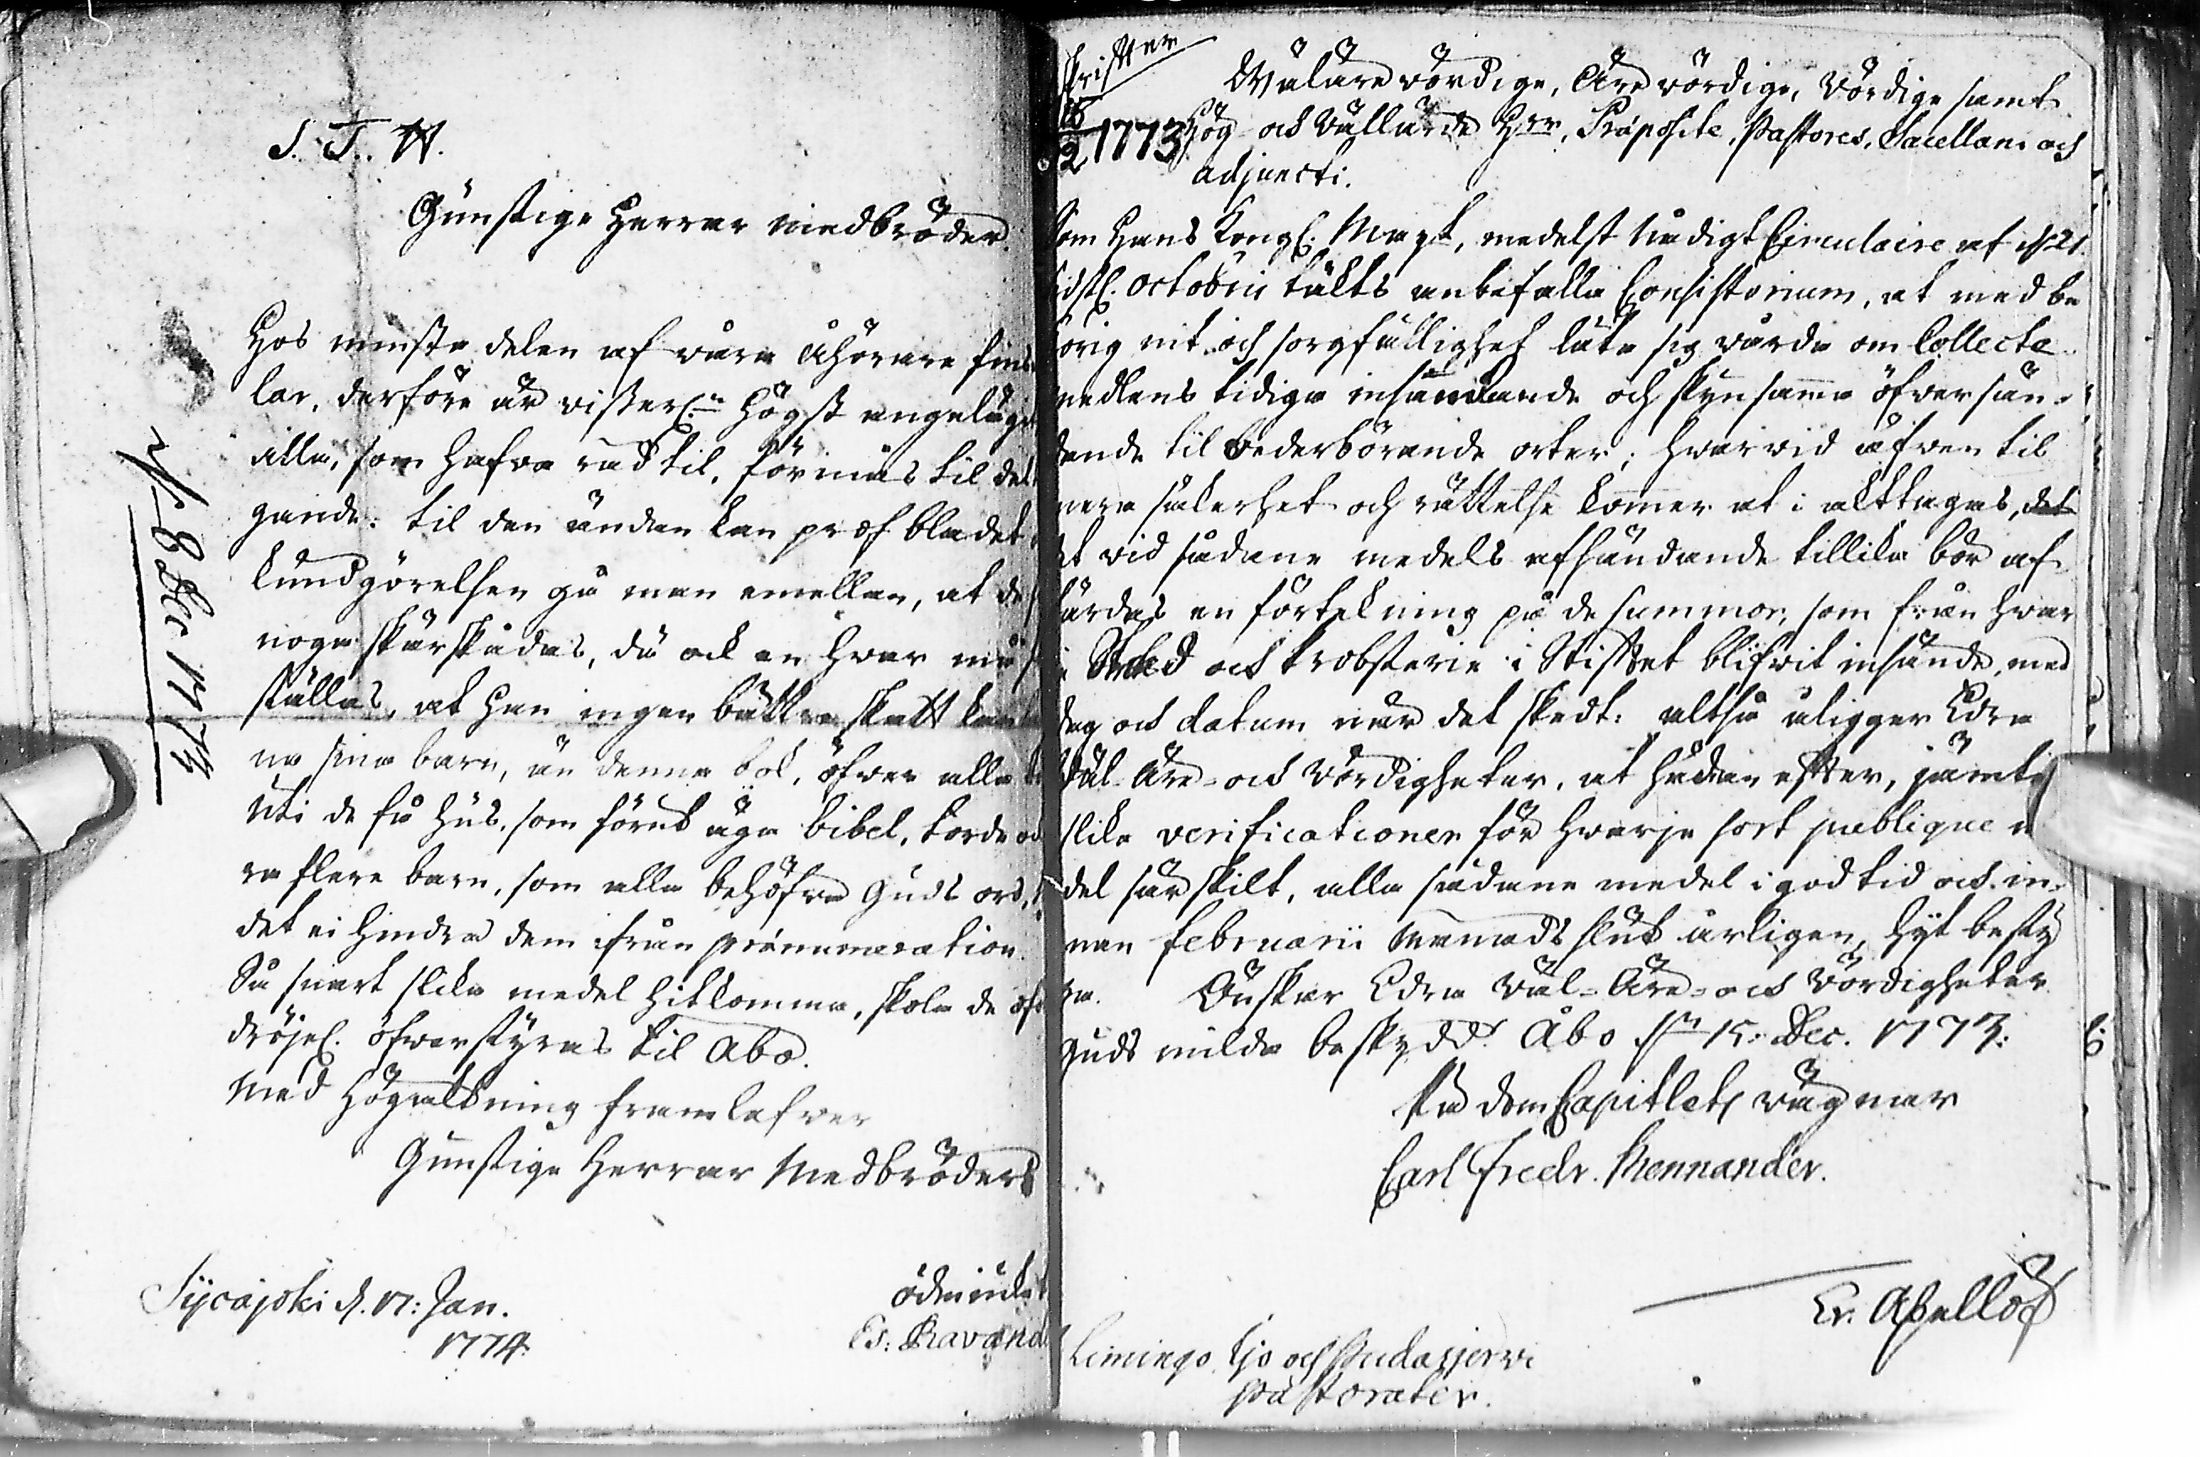 S. T. H.
Gunstige Herrar medbröder.
Hos minsta delen af våra åhörare fins
lar, derföre är visserl:n högst angeläge
alla, som hafva råd til, förmås til det
gande: til den ändan kan prof bladet
kundgörelsen gå man emellan, at de
noga skärskådas, då ock en hvar må
ställas, at han ingen bättre skatt kan
na sina barn, än denna bok, öfver alla
Uti de få hus, som förut äga bibel, torde
ra flere barn, som alla behöfva Guds ord,
det ei hindra dem ifrån prænumeration.
Så snart slika medel hitkomma, skola de of
dröjel. öfverstyras til Åbo.
Med högaktning framlefver
Gunstige Herrar Medbröders
ödmiuke
Es: Ravand
Sijcajoki d. 17: Jan.
1774.
N 8 Dec 1773
skrifter
15/12 1773
Wäl ärevördige, Ärevördige, Vördige samt
Hög och Vällärde Herr, Præposite, Pastores, Sacellani och
adjuncti.
Som Hans Kongl. Maj:t, medelst Nådigt Circulaire af d. 21.
sidstl. Octobris täkts anbefalla Consistorium, at med be
hörig nit och sorgfällighet låta sig vårda om Collecte
medlens tidiga insamlande och skyndsamma öfversän-
dande til vederbörande orter; hvarvid äfven til
mera säkerhet och rättelse kommer at i akttagas,
at vid sådane medels afsändande tillika bör af
färdas en förtekning på de summor, som från hvar
je Stad och Probsterie i Stiftet blifvit insände, med
dag och datum när det skedt: altså åligger Edra
Wäl-Äre- och Vördigheter, at hädan efter, jämte
slika verificationer för hvarje sort publique me
del särskilt, alla sådane medel i god tid och in-
nan februarii månads slut årligen, hyt besty
ra. Önskar Edra Wäl-Äre- och Vördigheter
Guds milda beskydd. Åbo d:n 15: Dec. 1773:
På dom Capitlets vägnar
Carl Fredr. Mennander.
Er. Apellöf
Limingo, Ijo och Pudasjervi
pastorater.